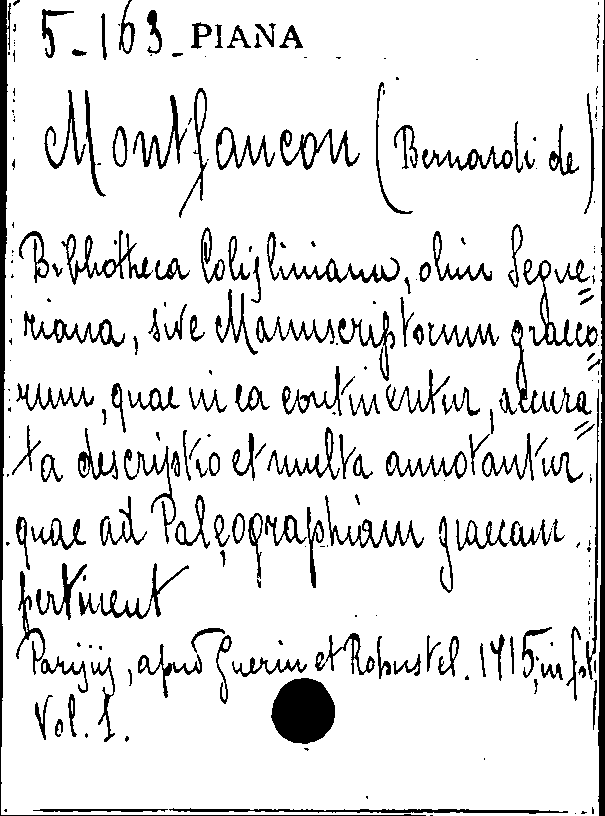 5-163 PIANA
Montfaucon (Bernardi de)
Bibliotheca Coisliniana, olim Segue=
riana, sive Manuscriptorum graeco=
rum, quae in ea continentur, accura=
ta descriptio et multa annotantur
quae ad Paleographiam graecam
pertinent
Parisiis, apud Guerin et Robustel. 1715, in fol.
Vol. 1.